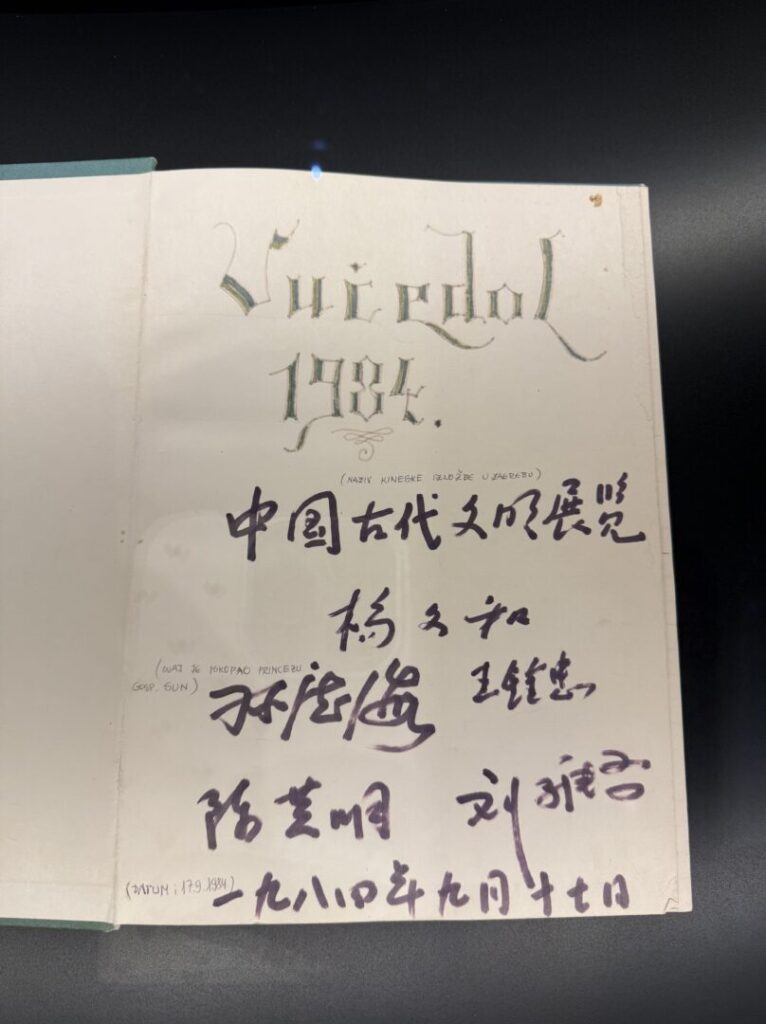 Vučedol
1984.
(NAZIV KINESKE IZLOŽBE U ZAGREBU)
中国古代文明展览
杨文和
(OVAJ JE ISKOPAO PRINCEZU
GOSP. SUN)
孙德海 王
陈 明 刘雅
(DATUM: 17.9.1984)
一九八四年九月十七日